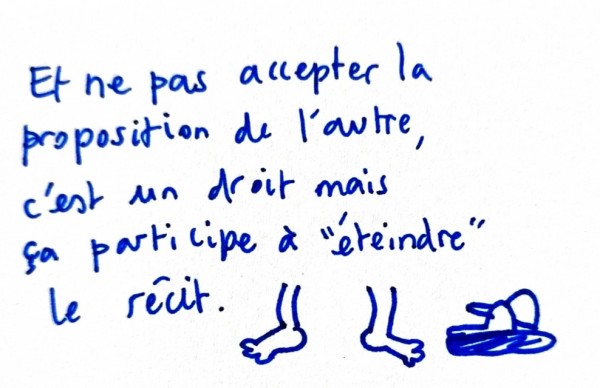 Et ne pas accepter la
proposition de l'autre,
c'est un droit mais
ça participe à "éteindre"
le récit.